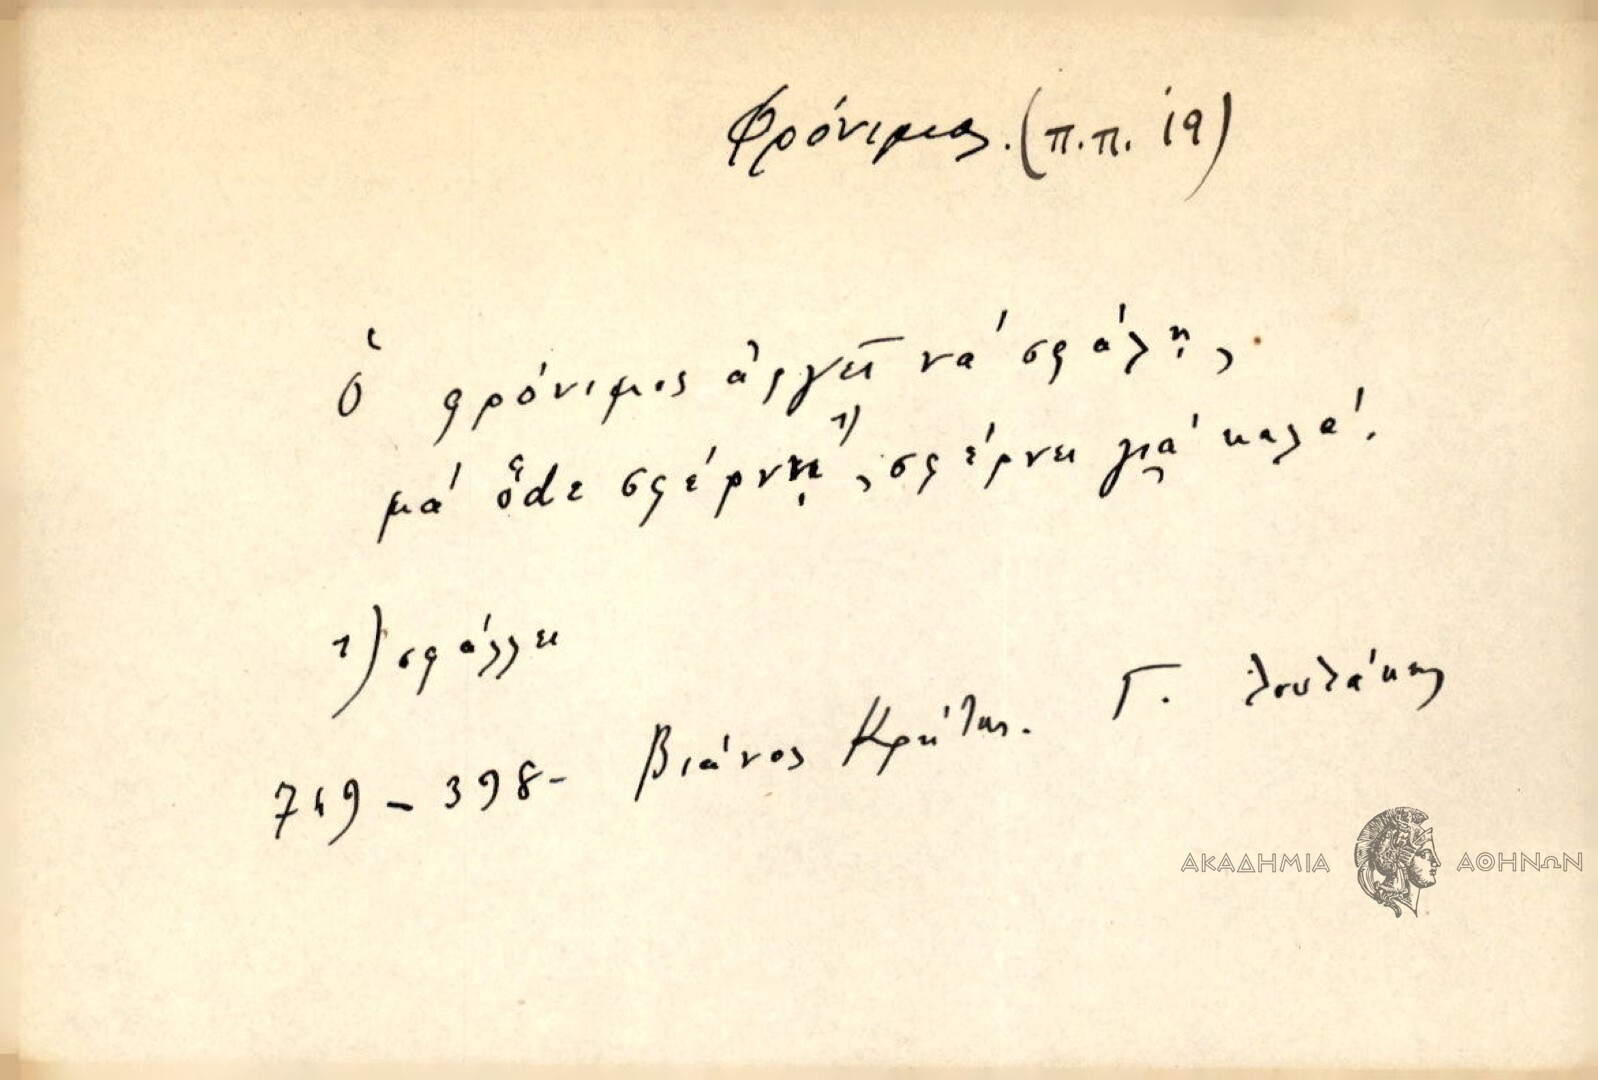 Φρόνιμος. (π.π. 19)
Ὁ φρόνιμος ἀργεῖ νά σφάλῃ,
μά ὅdε σφέρνῃ¹⁾, σφέρνει γιά καλά.
1) σφάλλει
749 - 398 - Βιάνος Κρήτης. Γ. Λουλάκης
ΑΚΑΔΗΜΙΑ ΑΘΗΝΩΝ